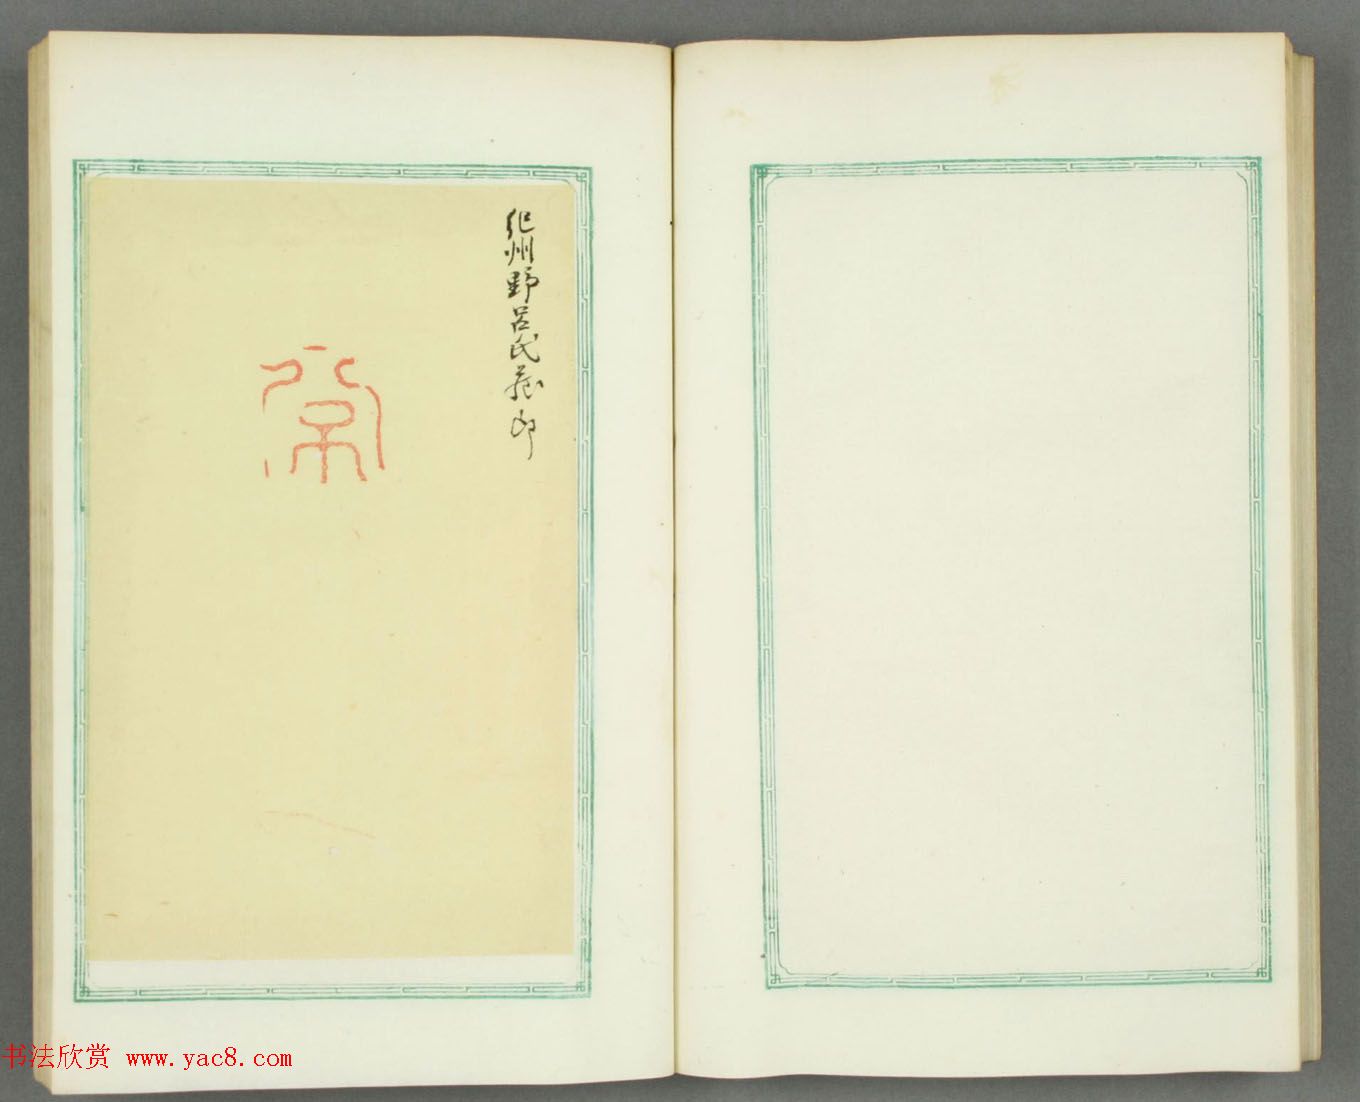 紀州野呂氏藏印
书法欣赏 www.yac8.com